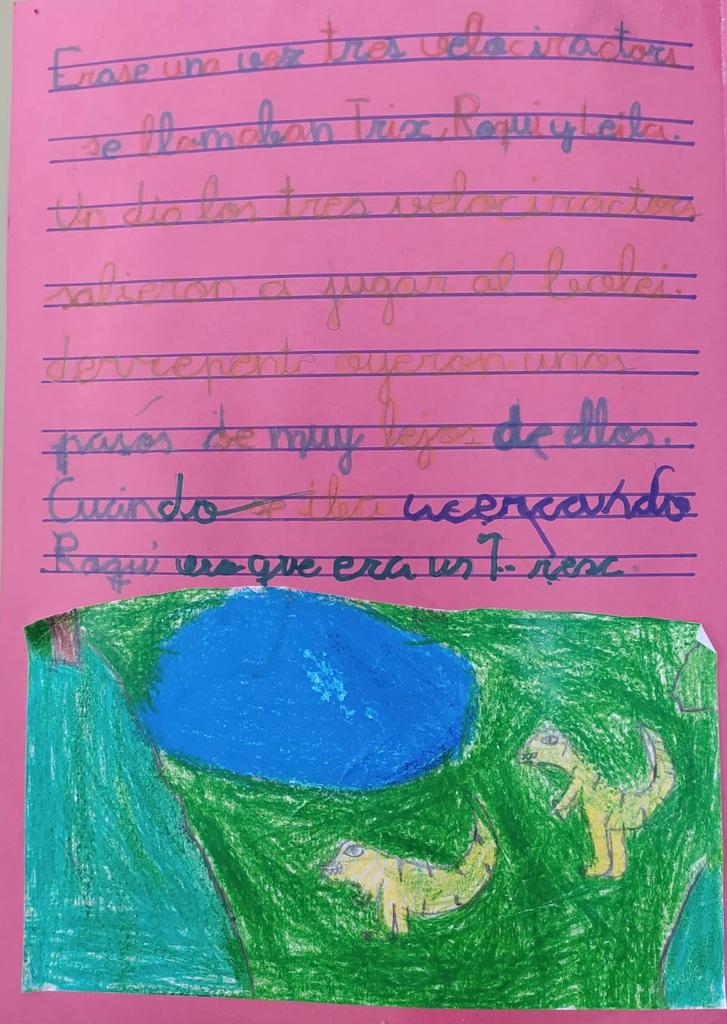 Erase una vez tres velociractors
se llamaban Trix, Roqui y Leila.
Un dia los tres velociractors
salieron a jugar al bolei.
derrepente oyeron unos
pasós de muy lejos de ellos.
Cuando se iba acercando
Roqui que era un T. resc.